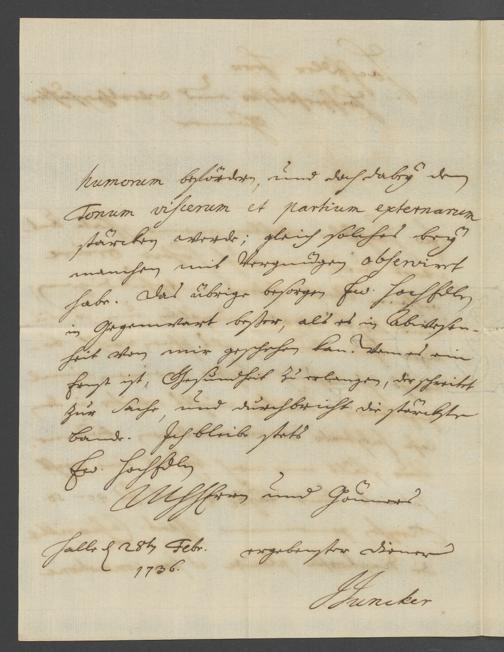 humorum befördern, und doch dabey den
Tonum viscerum et partium externarum
stärcken werde; gleich solches bey
manchen mit Vergnügen observirt
habe. Das übrige besorgen Ew. Hochedln
in Gegenwart besser, als es in Abwesen-
heit von mir geschehen kan. Wem es ein
Ernst ist, Gesundheit zu erlangen, der schreitet
zur Sache, und durchbricht die stärckste
Bande. Ich bleibe stets
Ew. Hochedln
und Gönners
Halle d 28ten Febr. ergebenster Diener
1736.
JJuncker